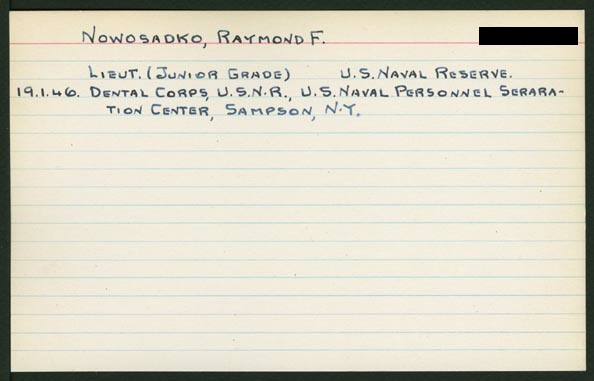 NOWOSADKO, RAYMOND F.
LIEUT. (JUNIOR GRADE) U.S. NAVAL RESERVE.
19.1.46. DENTAL CORPS, U.S.N.R., U.S. NAVAL PERSONNEL SERARA-
TION CENTER, SAMPSON, N.Y.